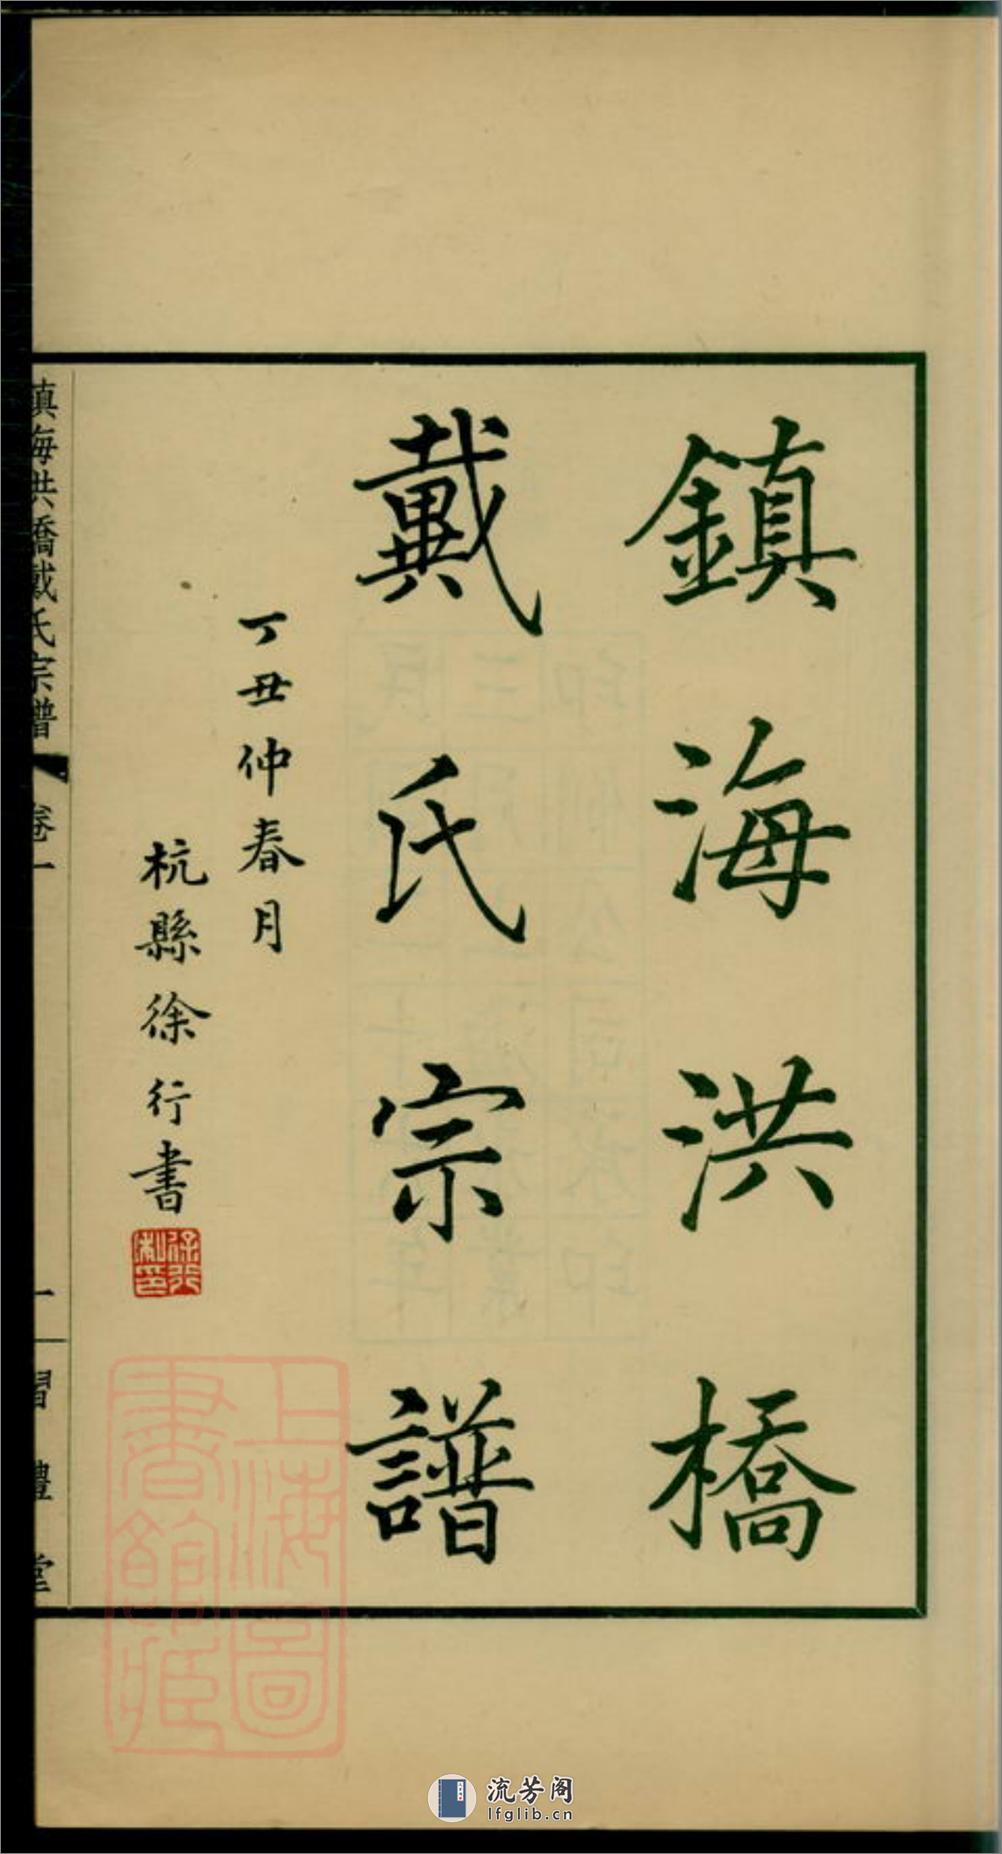 鎮海洪橋
戴氏宗譜
丁丑仲春月
杭縣徐行書
徐行私印
鎮海洪橋戴氏宗譜 卷一 一 習禮堂
上海圖書館藏
流芳阁
lfglib.cn